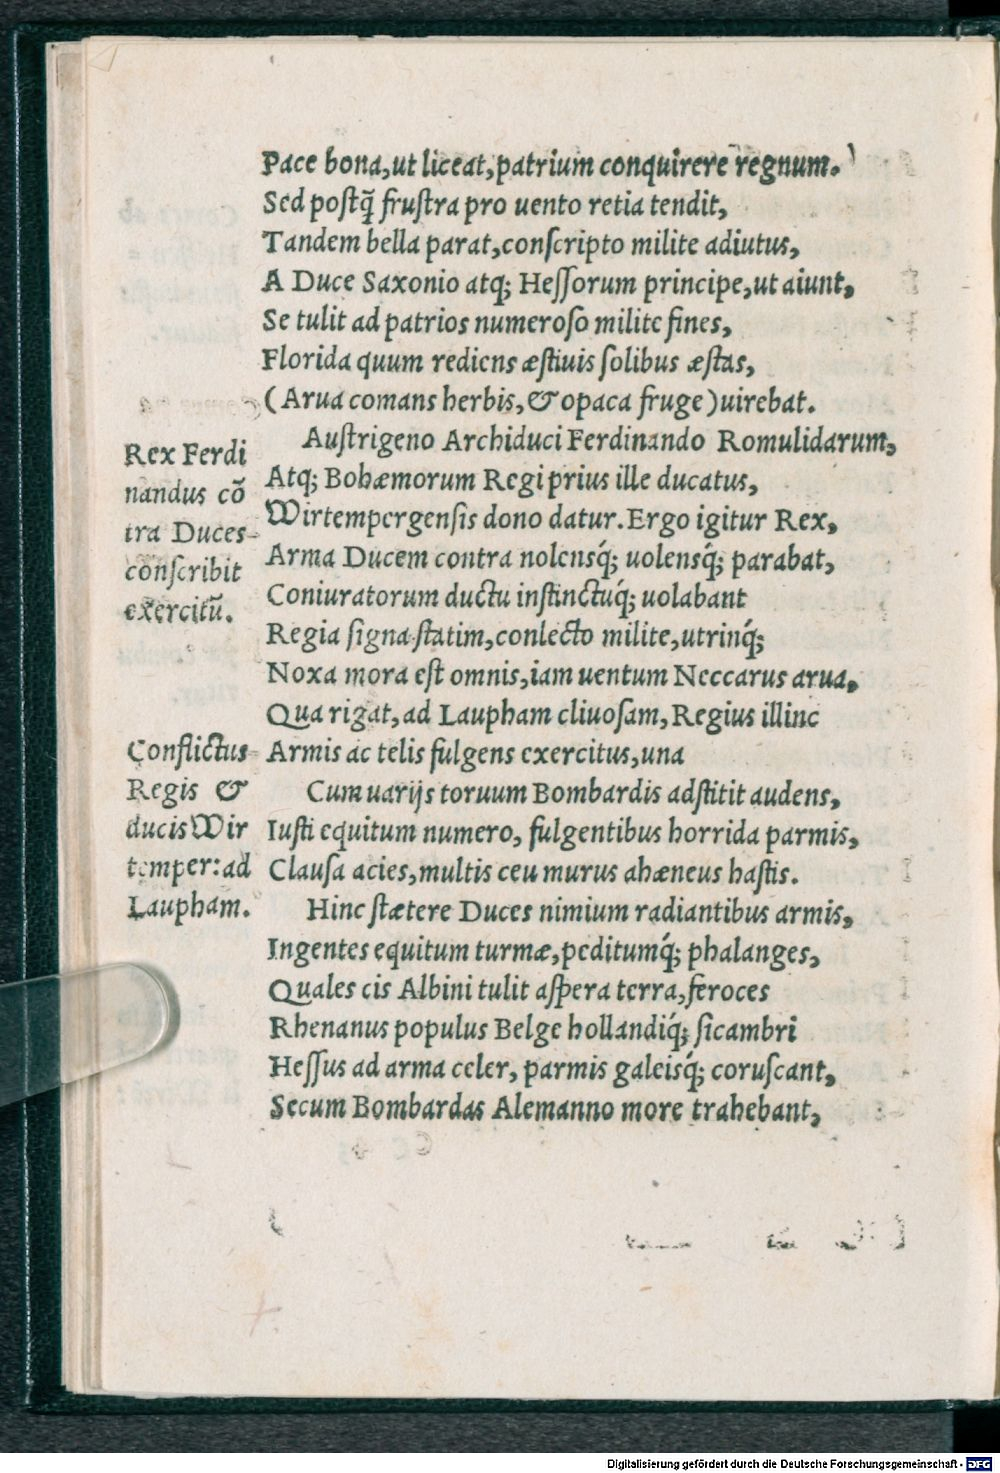 Pace bona, ut liceat, patrium conquirere regnum.
Sed postq̃ frustra pro uento retia tendit,
Tandem bella parat, conscripto milite adiutus,
A Duce Saxonio atq; Hessorum principe, ut aiunt,
Se tulit ad patrios numeroso milite fines,
Florida quum rediens æstiuis solibus æstas,
(Arua comans herbis, & opaca fruge) uirebat.
Austrigeno Archiduci Ferdinando Romulidarum,
Atq; Bohæmorum Regi prius ille ducatus,
Wirtempergensis dono datur. Ergo igitur Rex,
Arma Ducem contra nolensq́; uolensq́; parabat,
Coniuratorum ductu instinctuq́; uolabant
Regia signa statim, conlecto milite, utrinq́;
Noxa mora est omnis, iam uentum Neccarus arua,
Qua rigat, ad Laupham cliuosam, Regius illinc
Armis ac telis fulgens exercitus, una
Cum uarijs toruum Bombardis adstitit audens,
Iusti equitum numero, fulgentibus horrida parmis,
Clausa acies, multis ceu murus ahæneus hastis.
Hinc stætere Duces nimium radiantibus armis,
Ingentes equitum turmæ, peditumq́; phalanges,
Quales cis Albini tulit aspera terra, feroces
Rhenanus populus Belge hollandiq́; sicambri
Hessus ad arma celer, parmis galeisq́; coruscant,
Secum Bombardas Alemanno more trahebant,
Rex Ferdi
nandus cõ
tra Duces
conscribit
exercitũ.
Conflictus
Regis &
ducis Wir
temper: ad
Laupham.
Digitalisierung gefördert durch die Deutsche Forschungsgemeinschaft - DFG